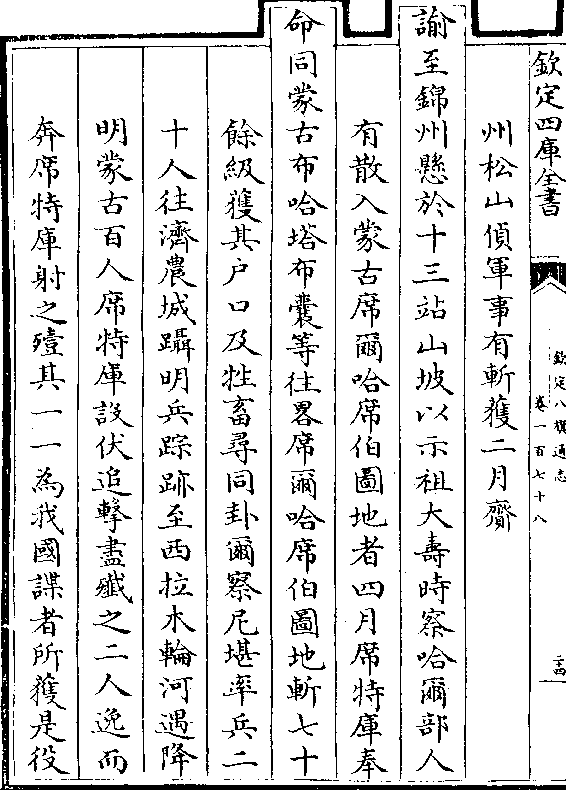 欽定四庫全書
欽定八旗通志
卷一百七十八
二十四
州松山偵軍事有斬獲二月齎
諭至錦州懸於十三站山坡以示祖大壽時察哈爾部人
有散入蒙古席爾哈席伯圖地者四月席特庫奉
命同蒙古布哈塔布囊等往畧席爾哈席伯圖地斬七十
餘級獲其户口及牲畜尋同卦爾察尼堪率兵二
十人往濟農城躡明兵踪跡至西拉木輪河遇降
明蒙古百人席特庫設伏追擊盡殲之二人逸而
奔席特庫射之殪其一一為我國諜者所獲是役